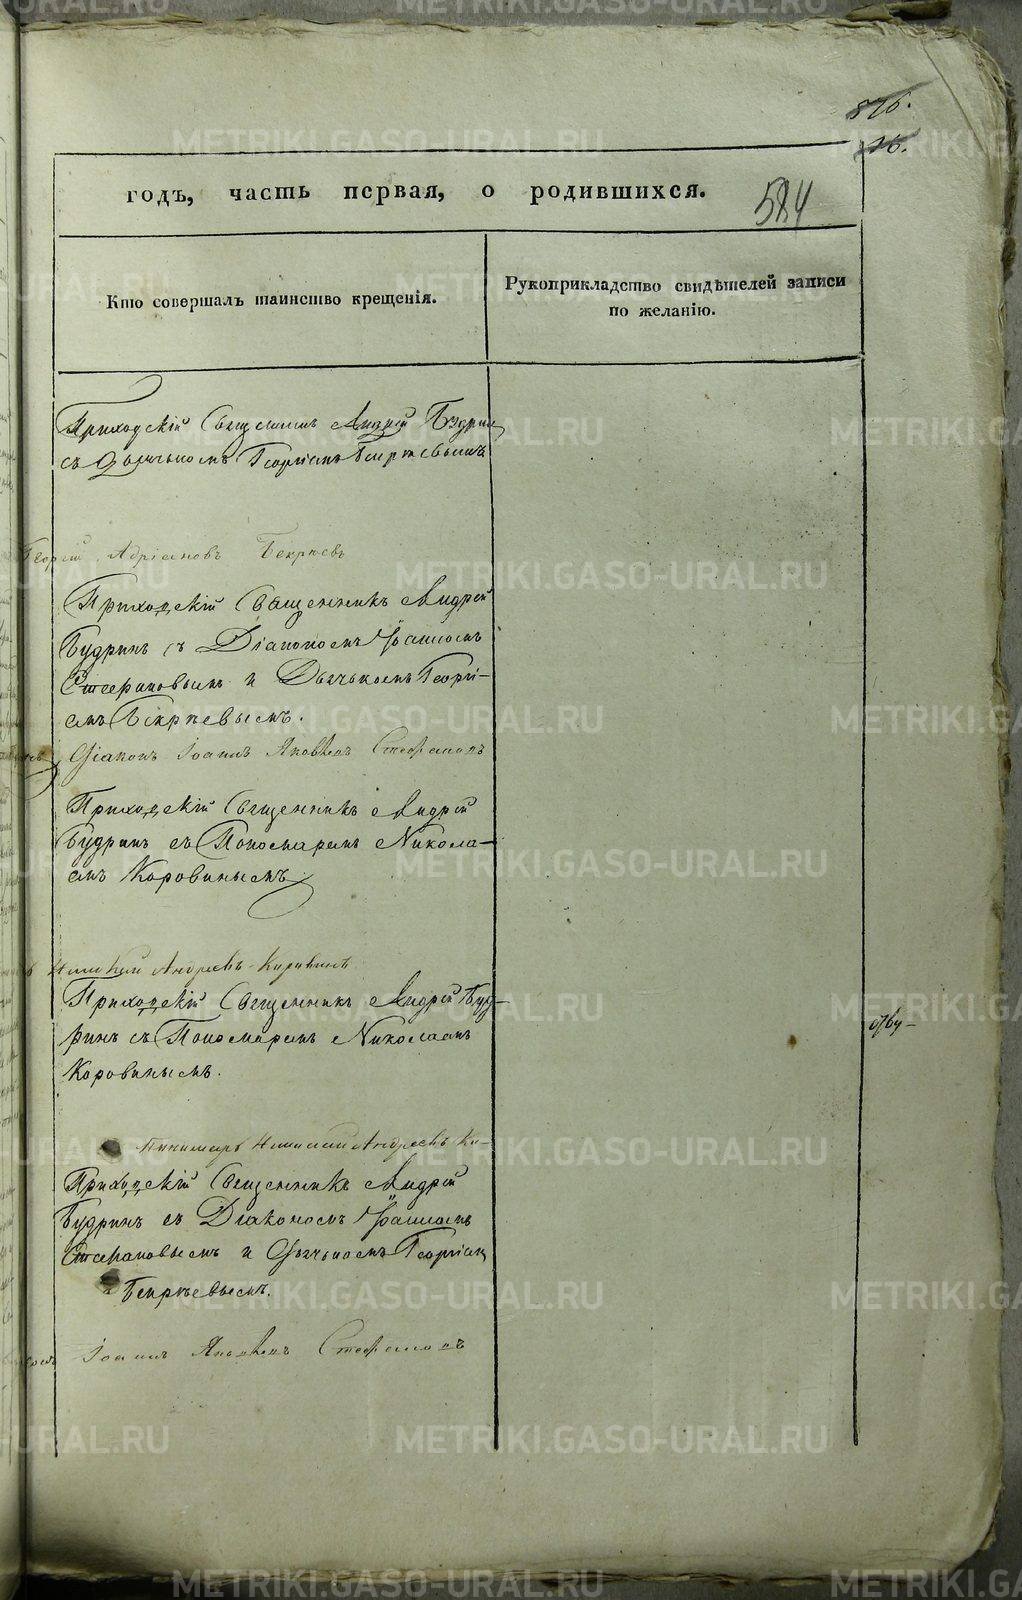 876.
16.
584
годъ, часть первая, о родившихся.
Кто совершалъ таинство крещенія.
Рукоприкладство свидѣтелей записи
по желанію.
Приходскій Священникъ Андрей Будринъ
съ Дьячькомъ Георгіемъ Бекряевымъ
Георгій Адріановъ Бекряевъ
Приходскій Священникъ Андрей
Будринъ съ Діакономъ Іоанномъ
Стефановымъ и Дьячькомъ Георгі-
емъ Бекряевымъ.
Діаконъ Іоаннъ Яковлевъ Стефановъ
Приходскій Священникъ Андрей
Будринъ съ Пономаремъ Никола-
емъ Коровинымъ
Николай Андреевъ Коровинъ
Приходскій Священникъ Андрей Буд-
ринъ съ Пономаремъ Николаемъ
Коровинымъ.
Пономарь Николай Андреевъ Ко-
Приходскій Священникъ Андрей
Будринъ съ Діакономъ Іоанномъ
Стефановымъ и Дьячькомъ Георгіем
Бекряевымъ.
Іоаннъ Яковлевъ Стефановъ
METRIKI.GASO-URAL.RU